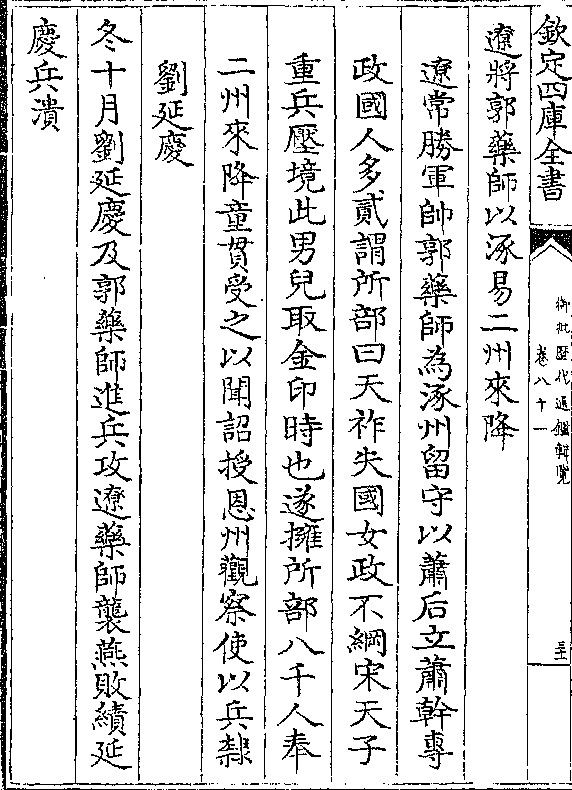 欽定四庫全書
御批歷代通鑑輯覽
卷八十一
遼將郭藥師以涿易二州來降
遼常勝軍帥郭藥師為涿州留守以蕭后立蕭幹專
政國人多貳謂所部曰天祚失國女政不綱宋天子
重兵壓境此男兒取金印時也遂擁所部八千人奉
二州來降童貫受之以聞詔授恩州觀察使以兵隸
劉延慶
冬十月劉延慶及郭藥師進兵攻遼藥師襲燕敗績延
慶兵潰